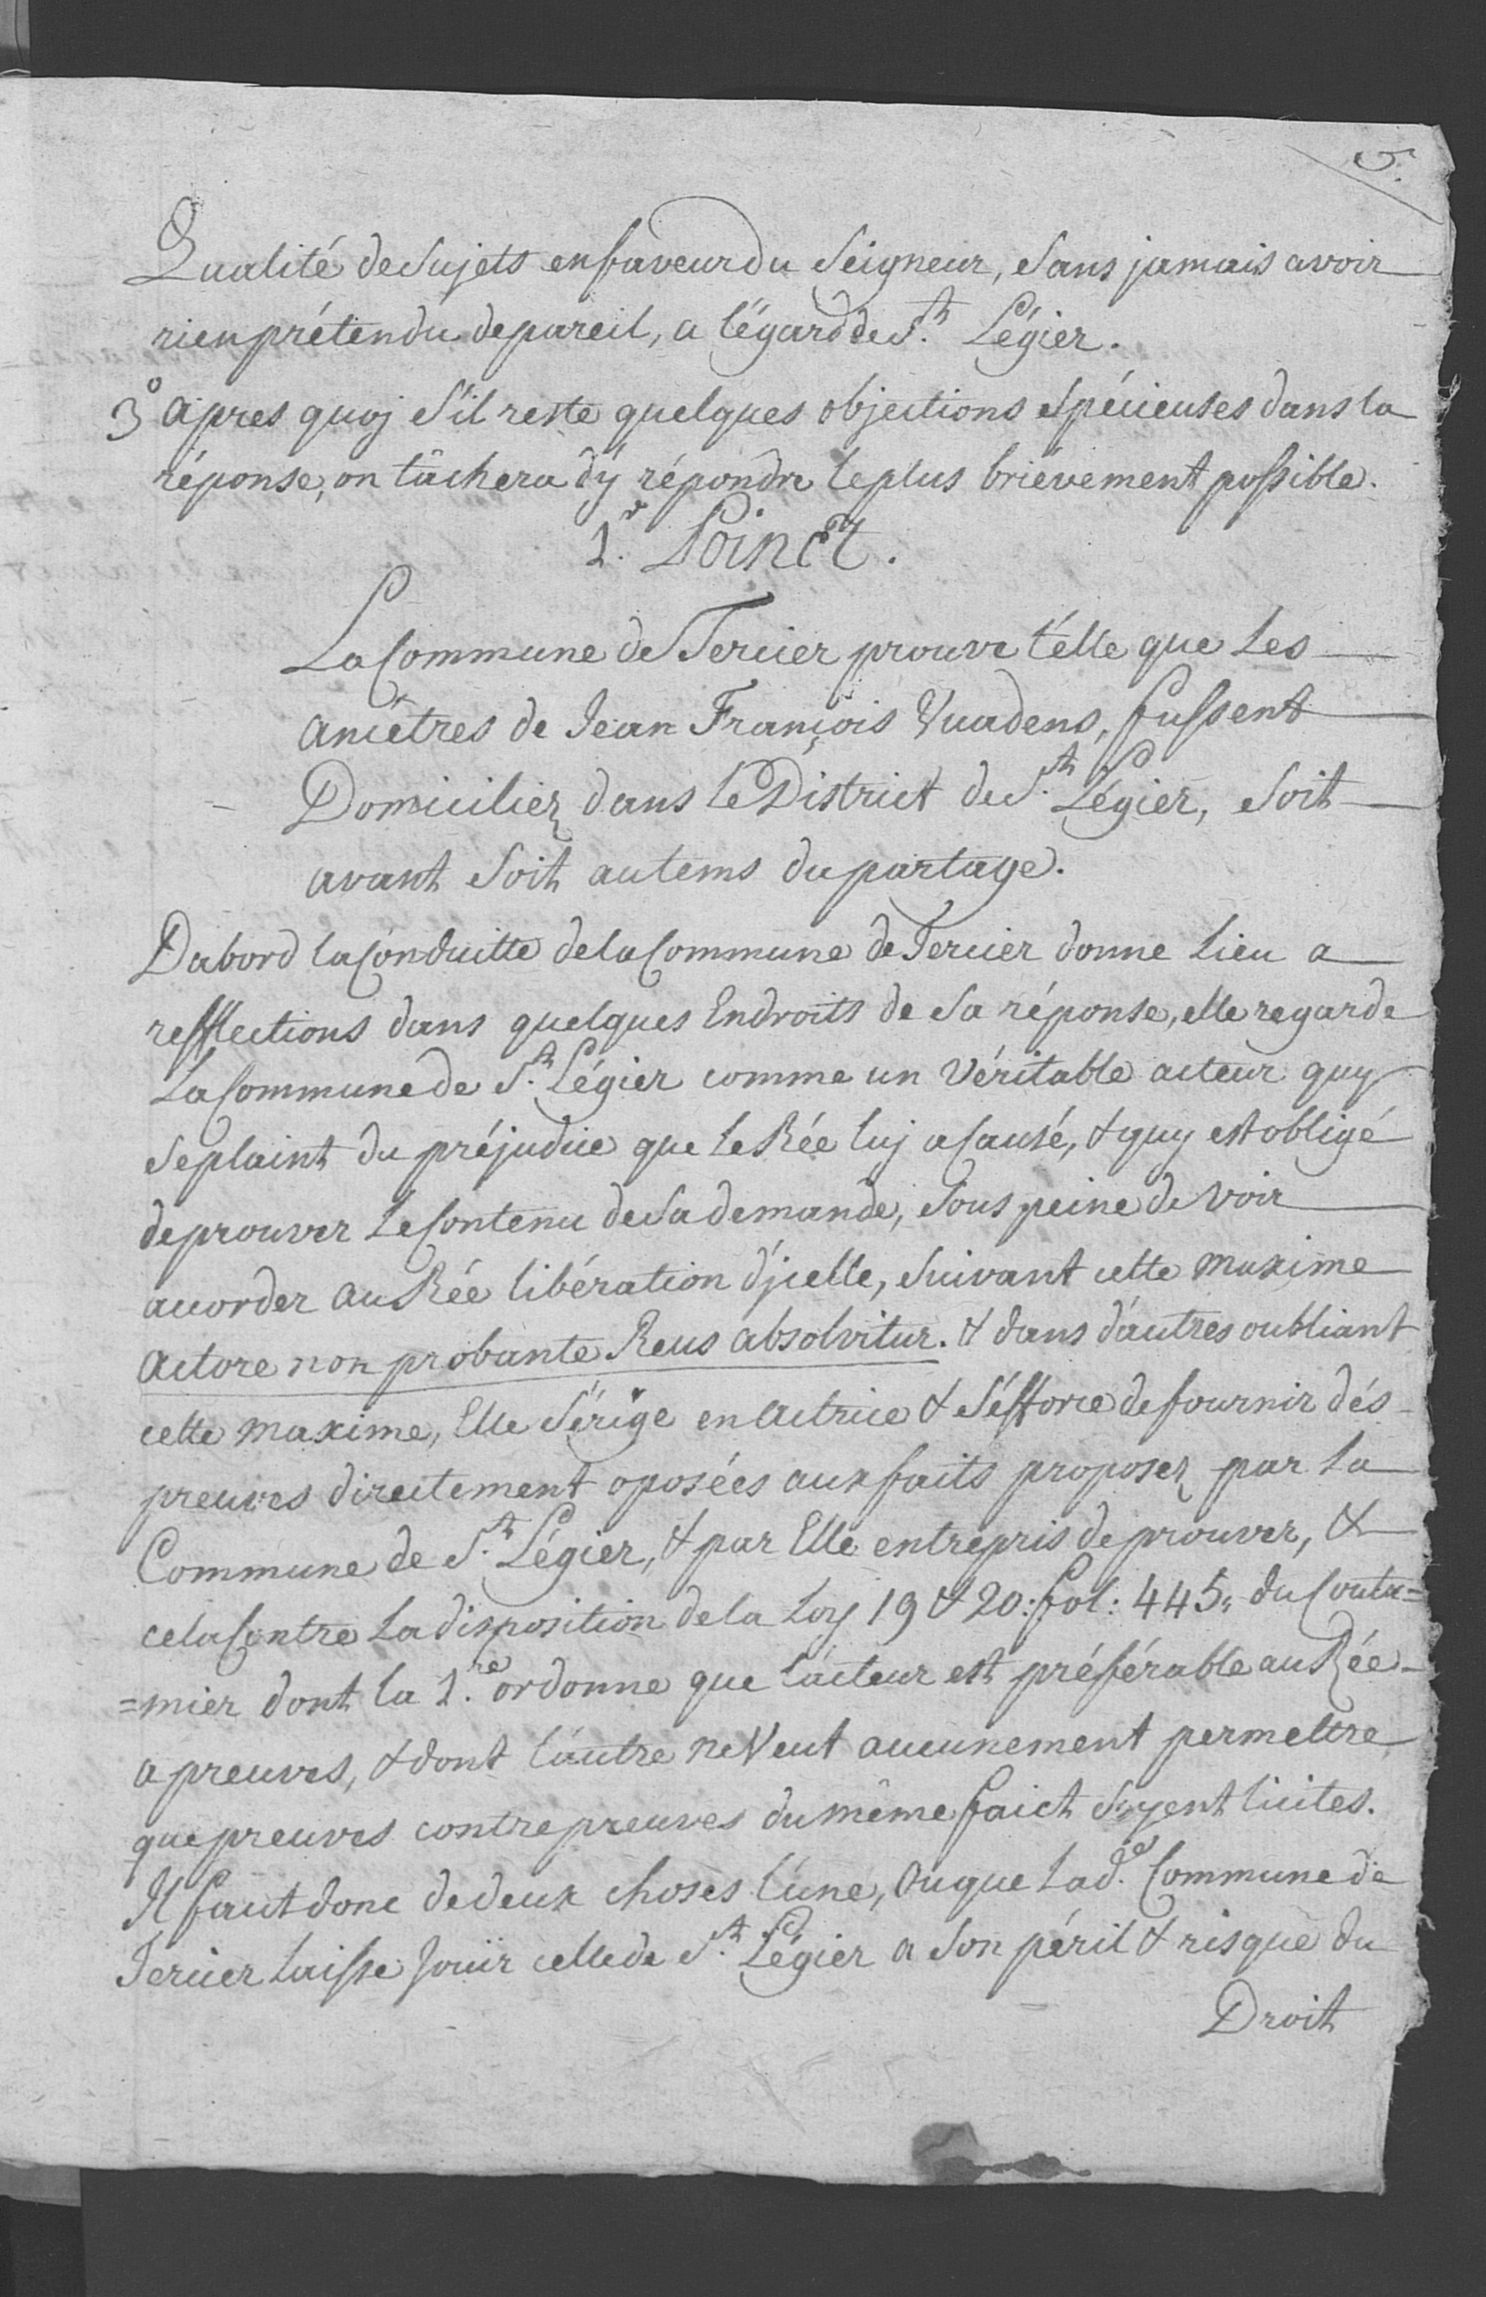 5.
Qualité de Sujets en faveur du Seigneur, Sans jamais avoir
rien prétendu de pareil, a l'égard de S.t Légier.
3.o apres quoj s'il reste quelques objections Spécieuses dans la
réponse, on tâchera d'y répondre le plus briévement possible.
1.r Poinct.
La Commune de Tercier prouve t'elle que Les
ancêtres de Jean François Vuadens, fussent
Domiciliez dans le District de S.t Légier, Soit
avant Soit au tems du partage.
Dabord la Conduitte de la Commune de Tercier donne Lieu a
refflections dans quelques Endroits de Sa réponse, elle regarde
La Commune de S.t Légier comme un Véritable acteur quy
Se plaint du préjudice que Le Rée luj a Causé, & quy est obligé
de prouver Le Contenu de Sa demande, Sous peine de Voir
accorder au Rée libération d'jcelle, Suivant cette maxime
actore non probante Reus absolvitur. & dans d'autres oubliant
cette maxime, Elle S'érige en Actrice & S'éfforce de fournir dés
preuves directement oposées aux faits proposez par la
Commune de S.t Légier, & par Elle entrepris de prouver, &
cela Contre La disposition de la Loy 19 & 20: fol: 445,, du Coutu=
=mier dont la 1.re ordonne que l'acteur est préférable au Rée
a preuves, & dont l'autre ne Veut aucunement permettre
que preuves contre preuves du même faict Soyent licites.
Il faut donc de deux choses l'une, Ou que Lad.e Commune de
Tercier Laisse Jouïr celle de S.t Légier a Son péril & risque du
Droit